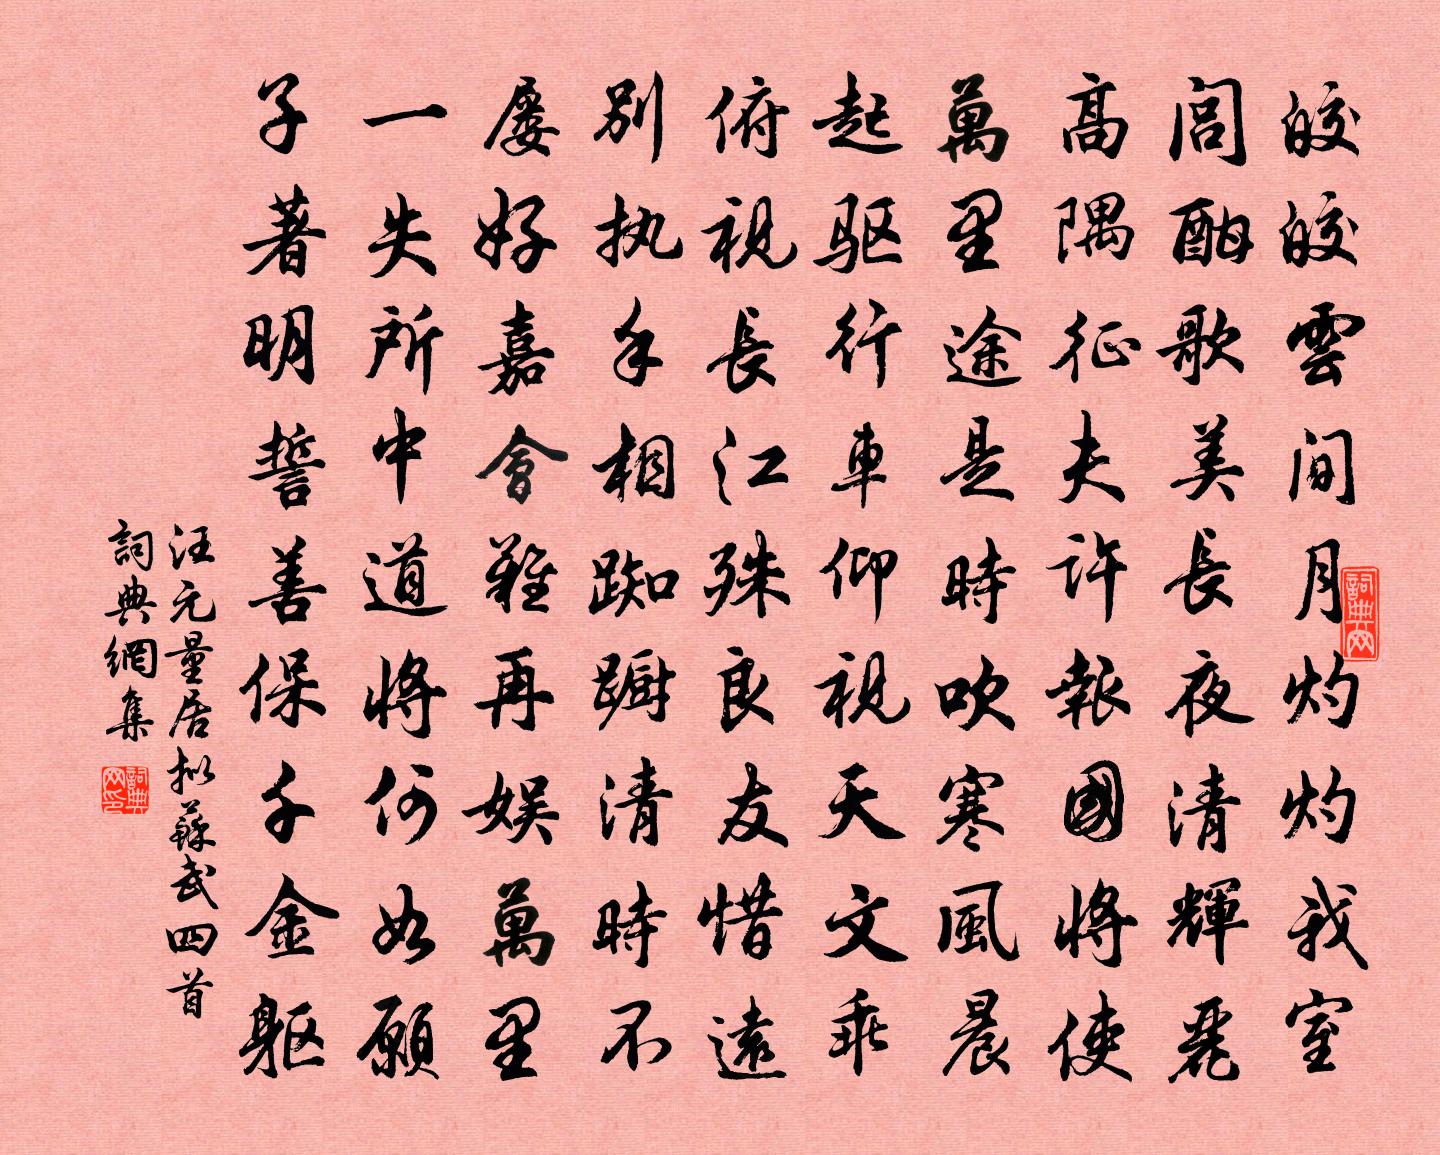 皎皎雲间月灼灼我室
闾酣歌美長夜清輝麗
高隅征夫許報國將使
萬里途是時吹寒風晨
起驱行車仰视天文乖
俯视長江殊良友惜遠
别执手相踟蹰清時不
屡好嘉會難再娱萬里
一失所中道將何如願
子著明誓善保千金躯
汪元量居拟蘇武四首
詞典網集
詞典网
詞典网印